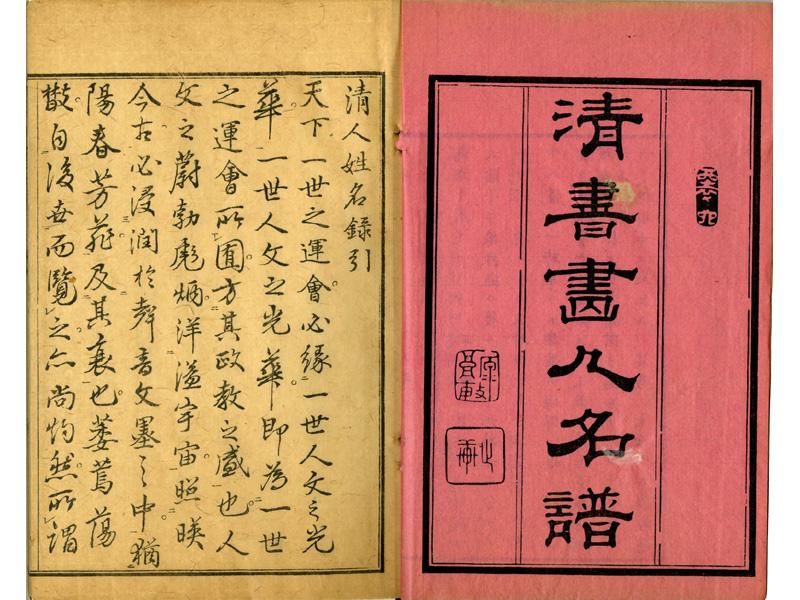 清書畫人名譜
清人姓名錄引
天下一世之運會必緣一世人文之光
華一世人文之光華即為一世
之運會所囿方其政教之盛也人
文之蔚勃彪炳洋溢宇宙照暎
今古必浸潤於聲音文墨之中猶
陽春芳菲及其衰也萎蔫蕩
散自後世而覽之亦尚灼然所謂